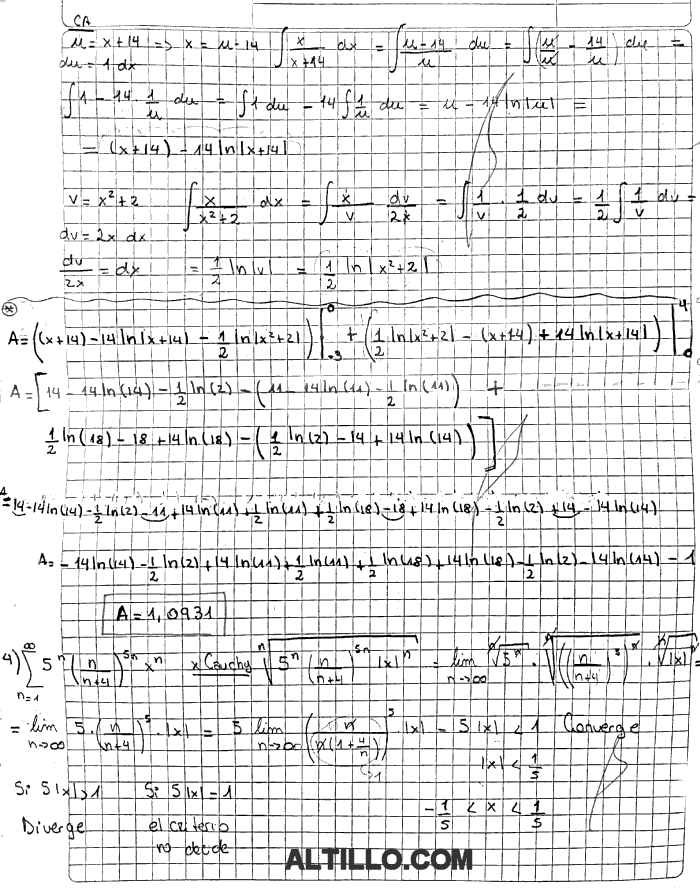 CA
μ = x+14 => x = μ-14   ∫ x/(x+14) dx = ∫ (μ-14)/μ du = ∫ (μ/μ - 14/μ) du =
du = 1 dx
∫ 1 - 14·1/μ du = ∫ 1 du - 14 ∫ 1/μ du = μ - 14 ln|μ| =
= (x+14) - 14 ln|x+14|
v = x²+2   ∫ x/(x²+2) dx = ∫ x/v dv/2x = ∫ 1/v · 1/2 dv = 1/2 ∫ 1/v dv =
dv = 2x dx
dv/2x = dx   = 1/2 ln|v| = 1/2 ln|x²+2|
*
A = ((x+14) - 14 ln|x+14| - 1/2 ln|x²+2|) |₋₃⁰ + (1/2 ln|x²+2| - (x+14) + 14 ln|x+14|) |₀⁴
A = [14 - 14 ln(14) - 1/2 ln(2) - (11 - 14 ln(11) - 1/2 ln(11)) +
1/2 ln(18) - 18 + 14 ln(18) - (1/2 ln(2) - 14 + 14 ln(14))]
A = 14 - 14 ln(14) - 1/2 ln(2) - 11 + 14 ln(11) + 1/2 ln(11) + 1/2 ln(18) - 18 + 14 ln(18) - 1/2 ln(2) + 14 - 14 ln(14)
A = - 14 ln(14) - 1/2 ln(2) + 14 ln(11) + 1/2 ln(11) + 1/2 ln(18) + 14 ln(18) - 1/2 ln(2) - 14 ln(14) - 1
A = 1,0931
4) ∑_{n=1}^{∞} 5ⁿ (n/(n+4))^{5n} xⁿ   x Cauchy   ⁿ√(5ⁿ (n/(n+4))^{5n} |x|ⁿ) = lim_{n→∞} ⁿ√(5ⁿ) · ⁿ√(((n/(n+4))⁵)ⁿ) · ⁿ√(|x|ⁿ) =
= lim_{n→∞} 5·(n/(n+4))⁵·|x| = 5 lim_{n→∞} (n/(n(1+4/n)))⁵·|x| = 5|x| < 1   Converge
→1   |x| < 1/5
Si 5|x|>1   Si 5|x|=1   -1/5 < x < 1/5
Diverge   el criterio
no decide
ALTILLO.COM